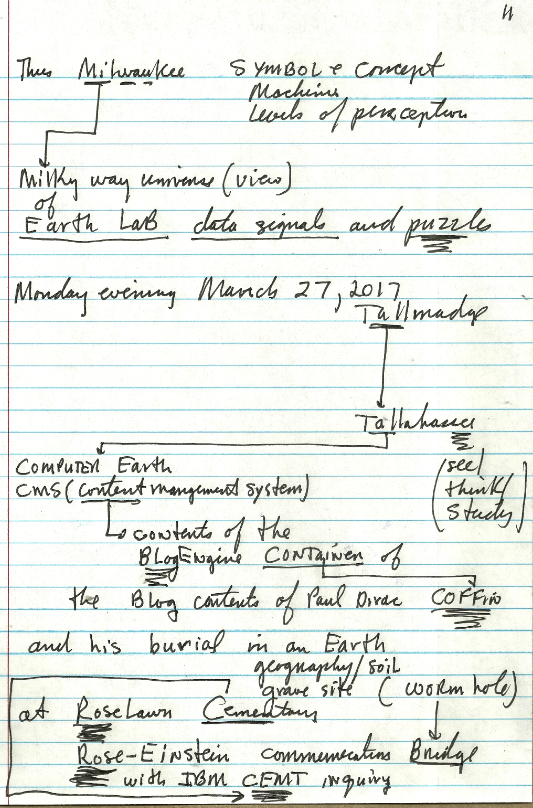 11
Thus Milwaukee SYMBOL & Concept
Machine
Levels of perception
Milky way universe (view)
of
Earth LAB data signals and puzzles
Monday evening March 27, 2017
Tallmadge
Tallahassee
COMPUTER Earth
CMS (Content management system)
(see/
think/
Study)
contents of the
BLogEngine CONTAINER of
the Blog contents of Paul Dirac COFFIN
and his burial in an Earth
geography/soil
grave site (worm hole)
at RoseLawn Cementary
Rose-Einstein communications Bridge
with IBM CEMT inquiry